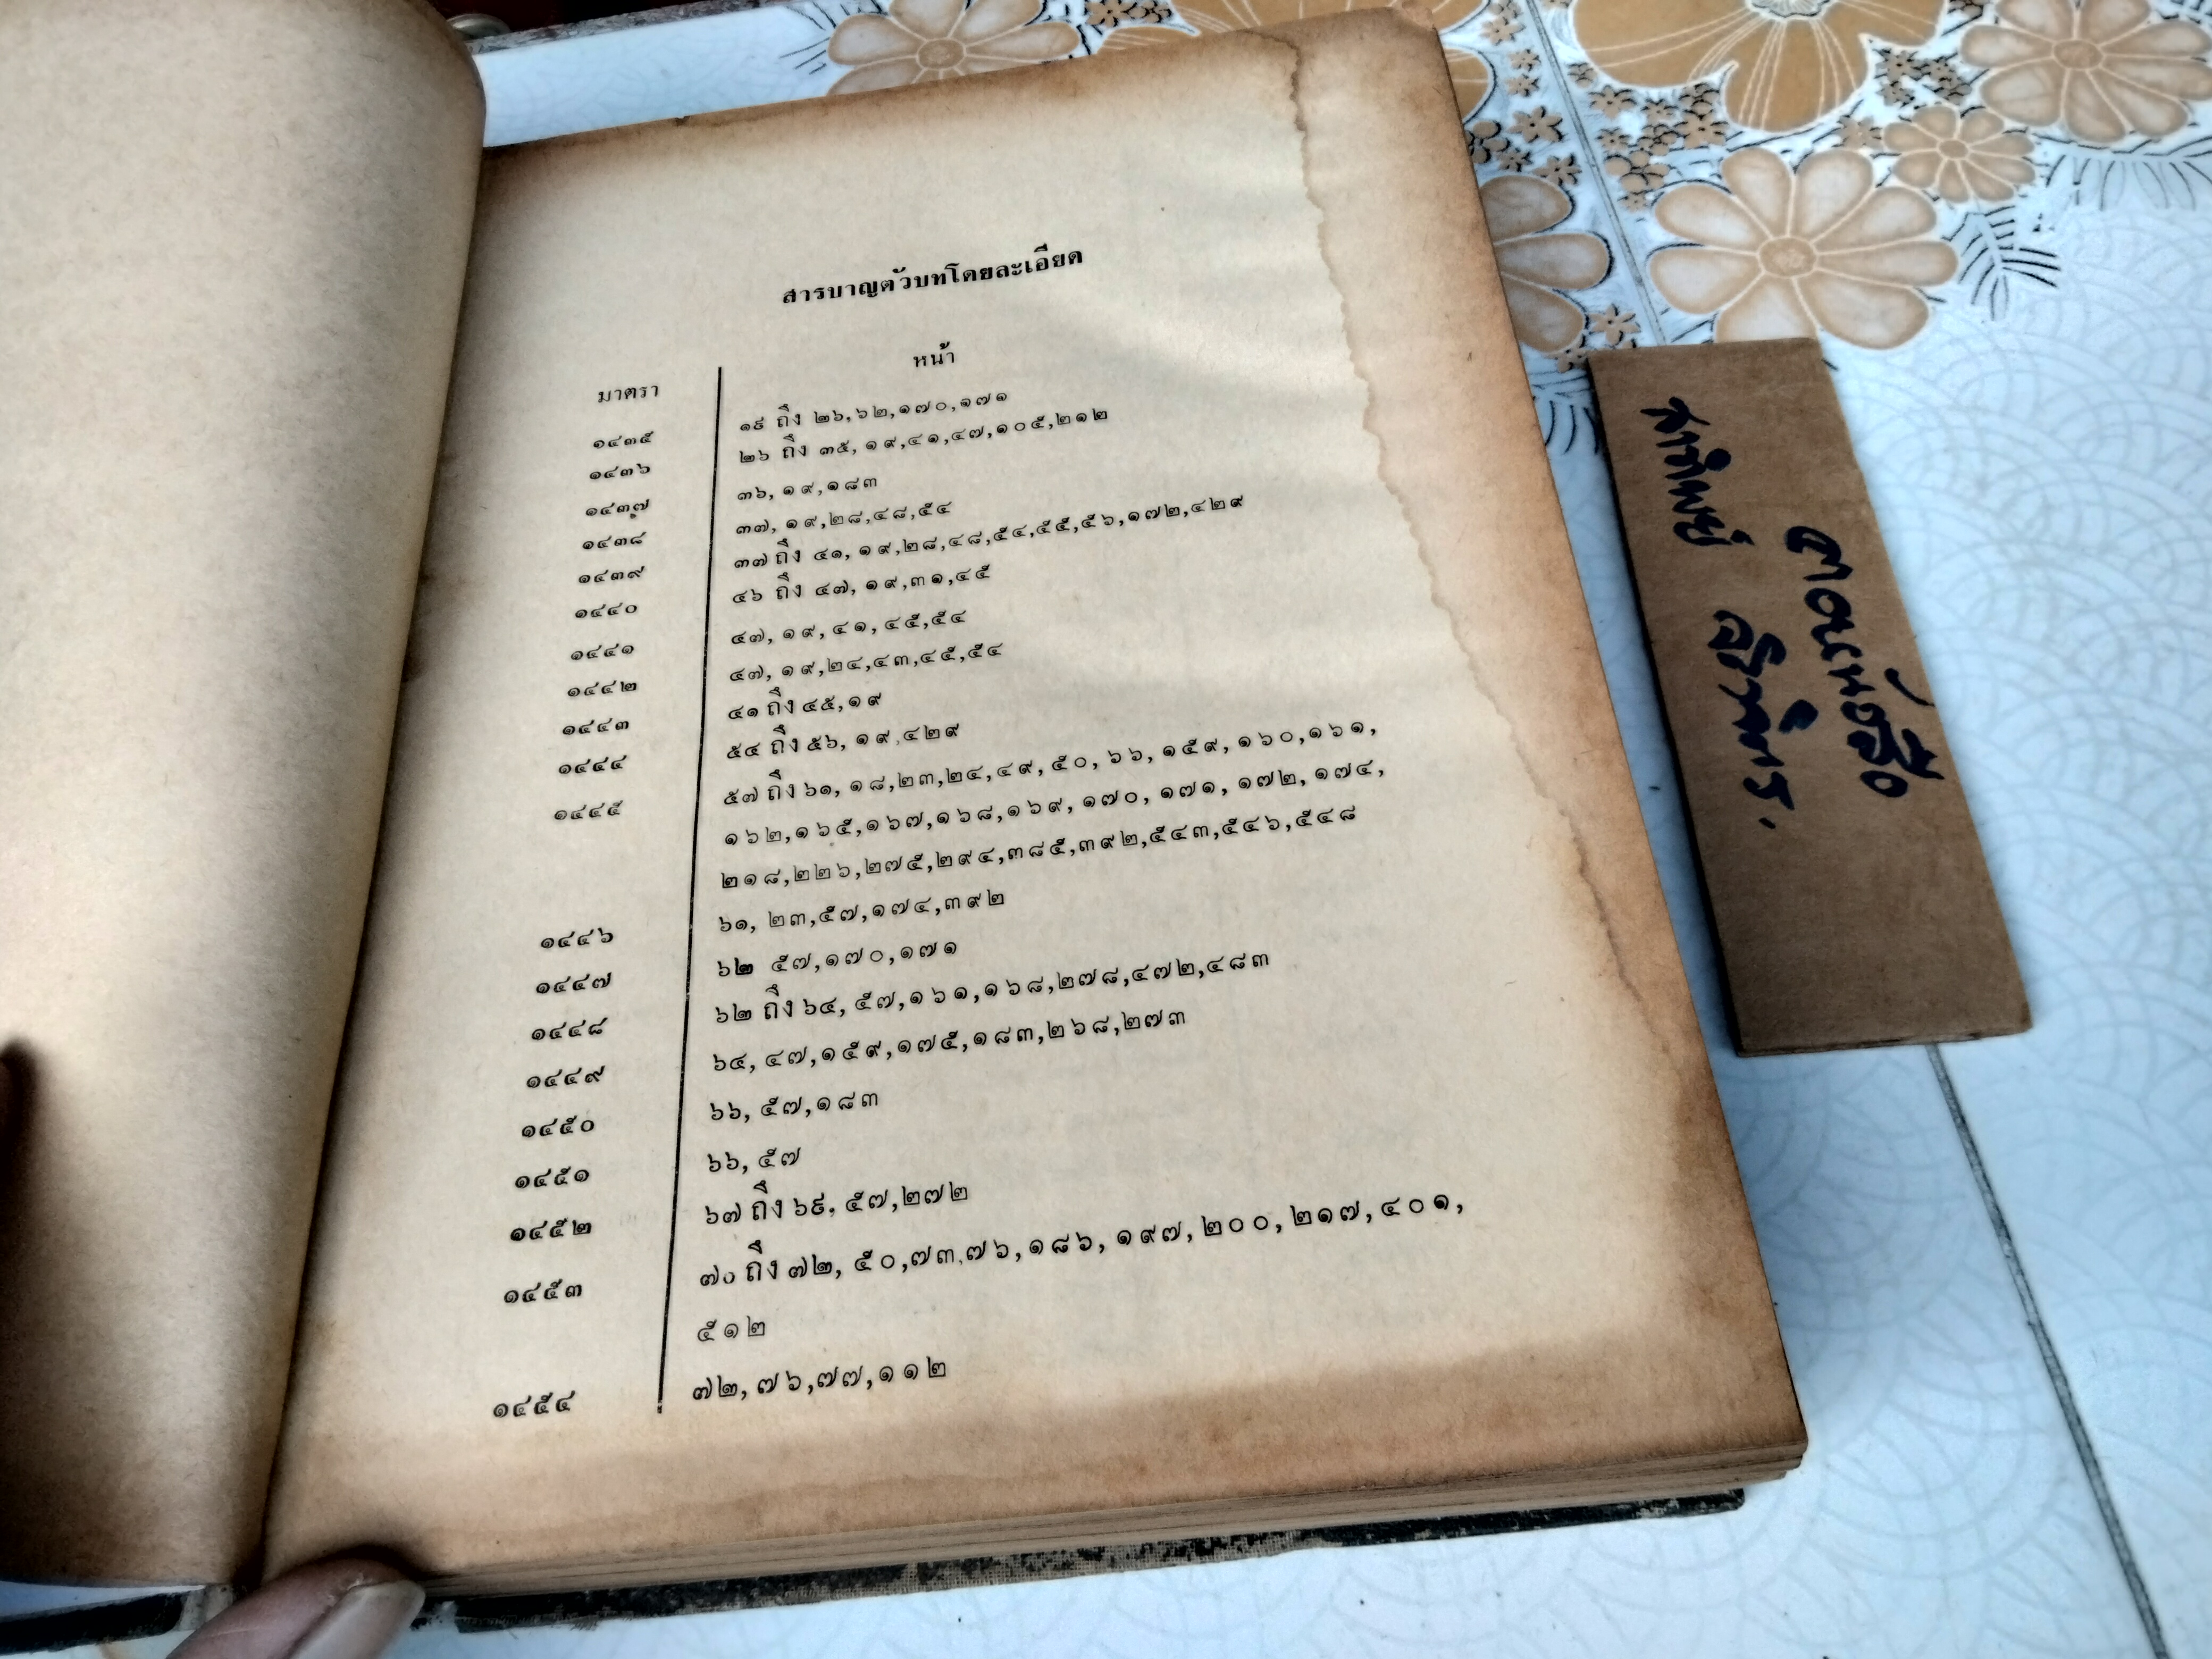 สารบาญตัวบทโดยละเอียด
มาตรา หน้า
๑๔๓๕ ๑๙ ถึง ๒๖,๖๒,๑๗๐,๑๗๑
๑๔๓๖ ๒๖ ถึง ๓๕, ๑๙,๔๑,๔๗,๑๐๕,๒๑๒
๑๔๓๗ ๓๖, ๑๙,๑๘๓
๑๔๓๘ ๓๗, ๑๙,๒๘,๔๘,๕๔
๑๔๓๙ ๓๗ ถึง ๔๑, ๑๙,๒๘,๔๘,๕๔,๕๕,๕๖,๑๗๒,๔๒๙
๑๔๔๐ ๔๖ ถึง ๔๗, ๑๙,๓๑,๔๕
๑๔๔๑ ๔๗, ๑๙, ๔๑, ๔๕,๕๔
๑๔๔๒ ๔๗, ๑๙,๒๔,๔๓,๔๕,๕๔
๑๔๔๓ ๔๑ ถึง ๔๕,๑๙
๑๔๔๔ ๕๔ ถึง ๕๖, ๑๙,๔๒๙
๑๔๔๕ ๕๗ ถึง ๖๑, ๑๘,๒๓,๒๔,๔๙, ๕๐, ๖๖, ๑๕๙, ๑๖๐,๑๖๑,
๑๖๒,๑๖๕,๑๖๗,๑๖๘,๑๖๙, ๑๗๐, ๑๗๑, ๑๗๒, ๑๗๔,
๒๑๘,๒๒๖,๒๗๕,๒๙๔,๓๘๕,๓๙๒,๕๔๓,๕๔๖,๕๔๘
๑๔๔๖ ๖๑, ๒๓,๕๗,๑๗๔,๓๙๒
๑๔๔๗ ๖๒ ๕๗,๑๗๐,๑๗๑
๑๔๔๘ ๖๒ ถึง ๖๔, ๕๗,๑๖๑,๑๖๘,๒๗๘,๔๗๒,๔๘๓
๑๔๔๙ ๖๔, ๔๗,๑๕๙,๑๗๕,๑๘๓,๒๖๘,๒๗๓
๑๔๕๐ ๖๖, ๕๗,๑๘๓
๑๔๕๑ ๖๖, ๕๗
๑๔๕๒ ๖๗ ถึง ๖๙, ๕๗,๒๗๒
๑๔๕๓ ๗๐ ถึง ๗๒, ๕๐,๗๓,๗๖,๑๘๖, ๑๙๗, ๒๐๐, ๒๑๗, ๔๐๑,
๕๑๒
๑๔๕๔ ๗๒, ๗๖,๗๗,๑๑๒